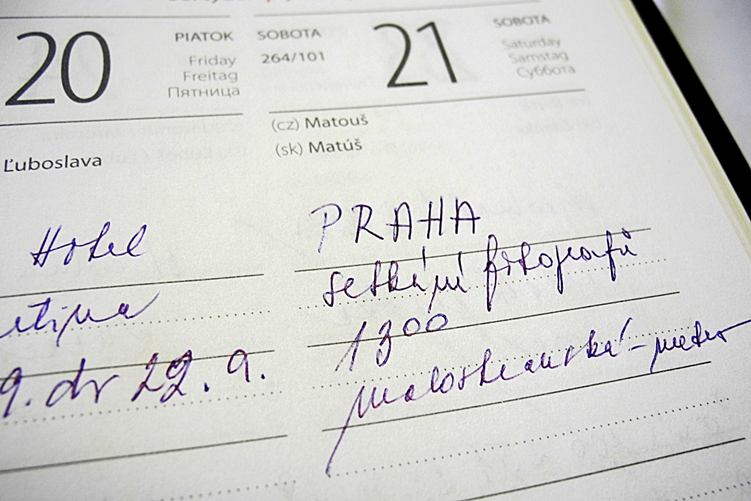 20
PIATOK
Friday
Freitag
Пятница
Ľuboslava
Hotel
9. do 22. 9.
SOBOTA
264/101
21
SOBOTA
Saturday
Samstag
Суббота
(cz) Matouš
(sk) Matúš
PRAHA
setkání fotografů
1300
malostranská - metro